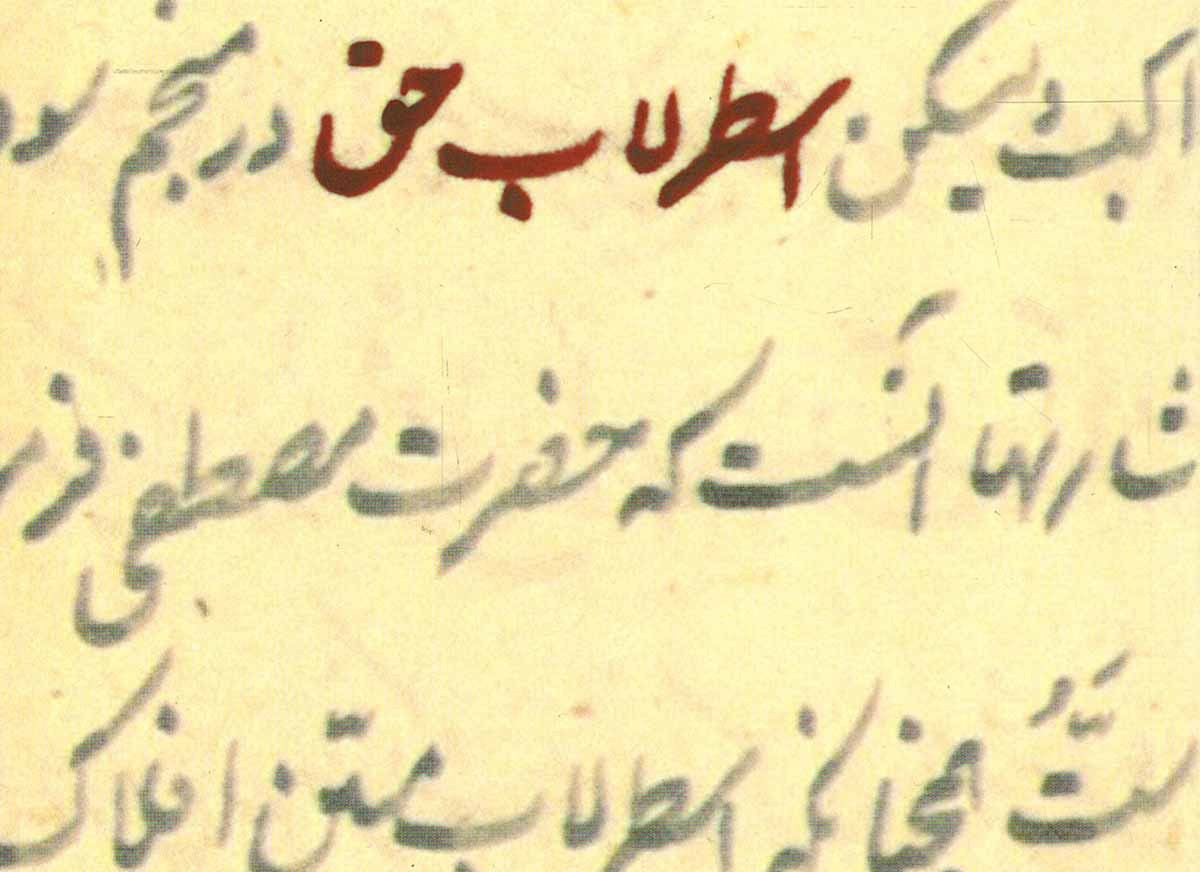 اکبت لیکن اسطرلاب حق در منجم سود
شارتها آنست که حضرت مصطفی فر
ست همچنانکه اسطرلاب مبیّن افلاک